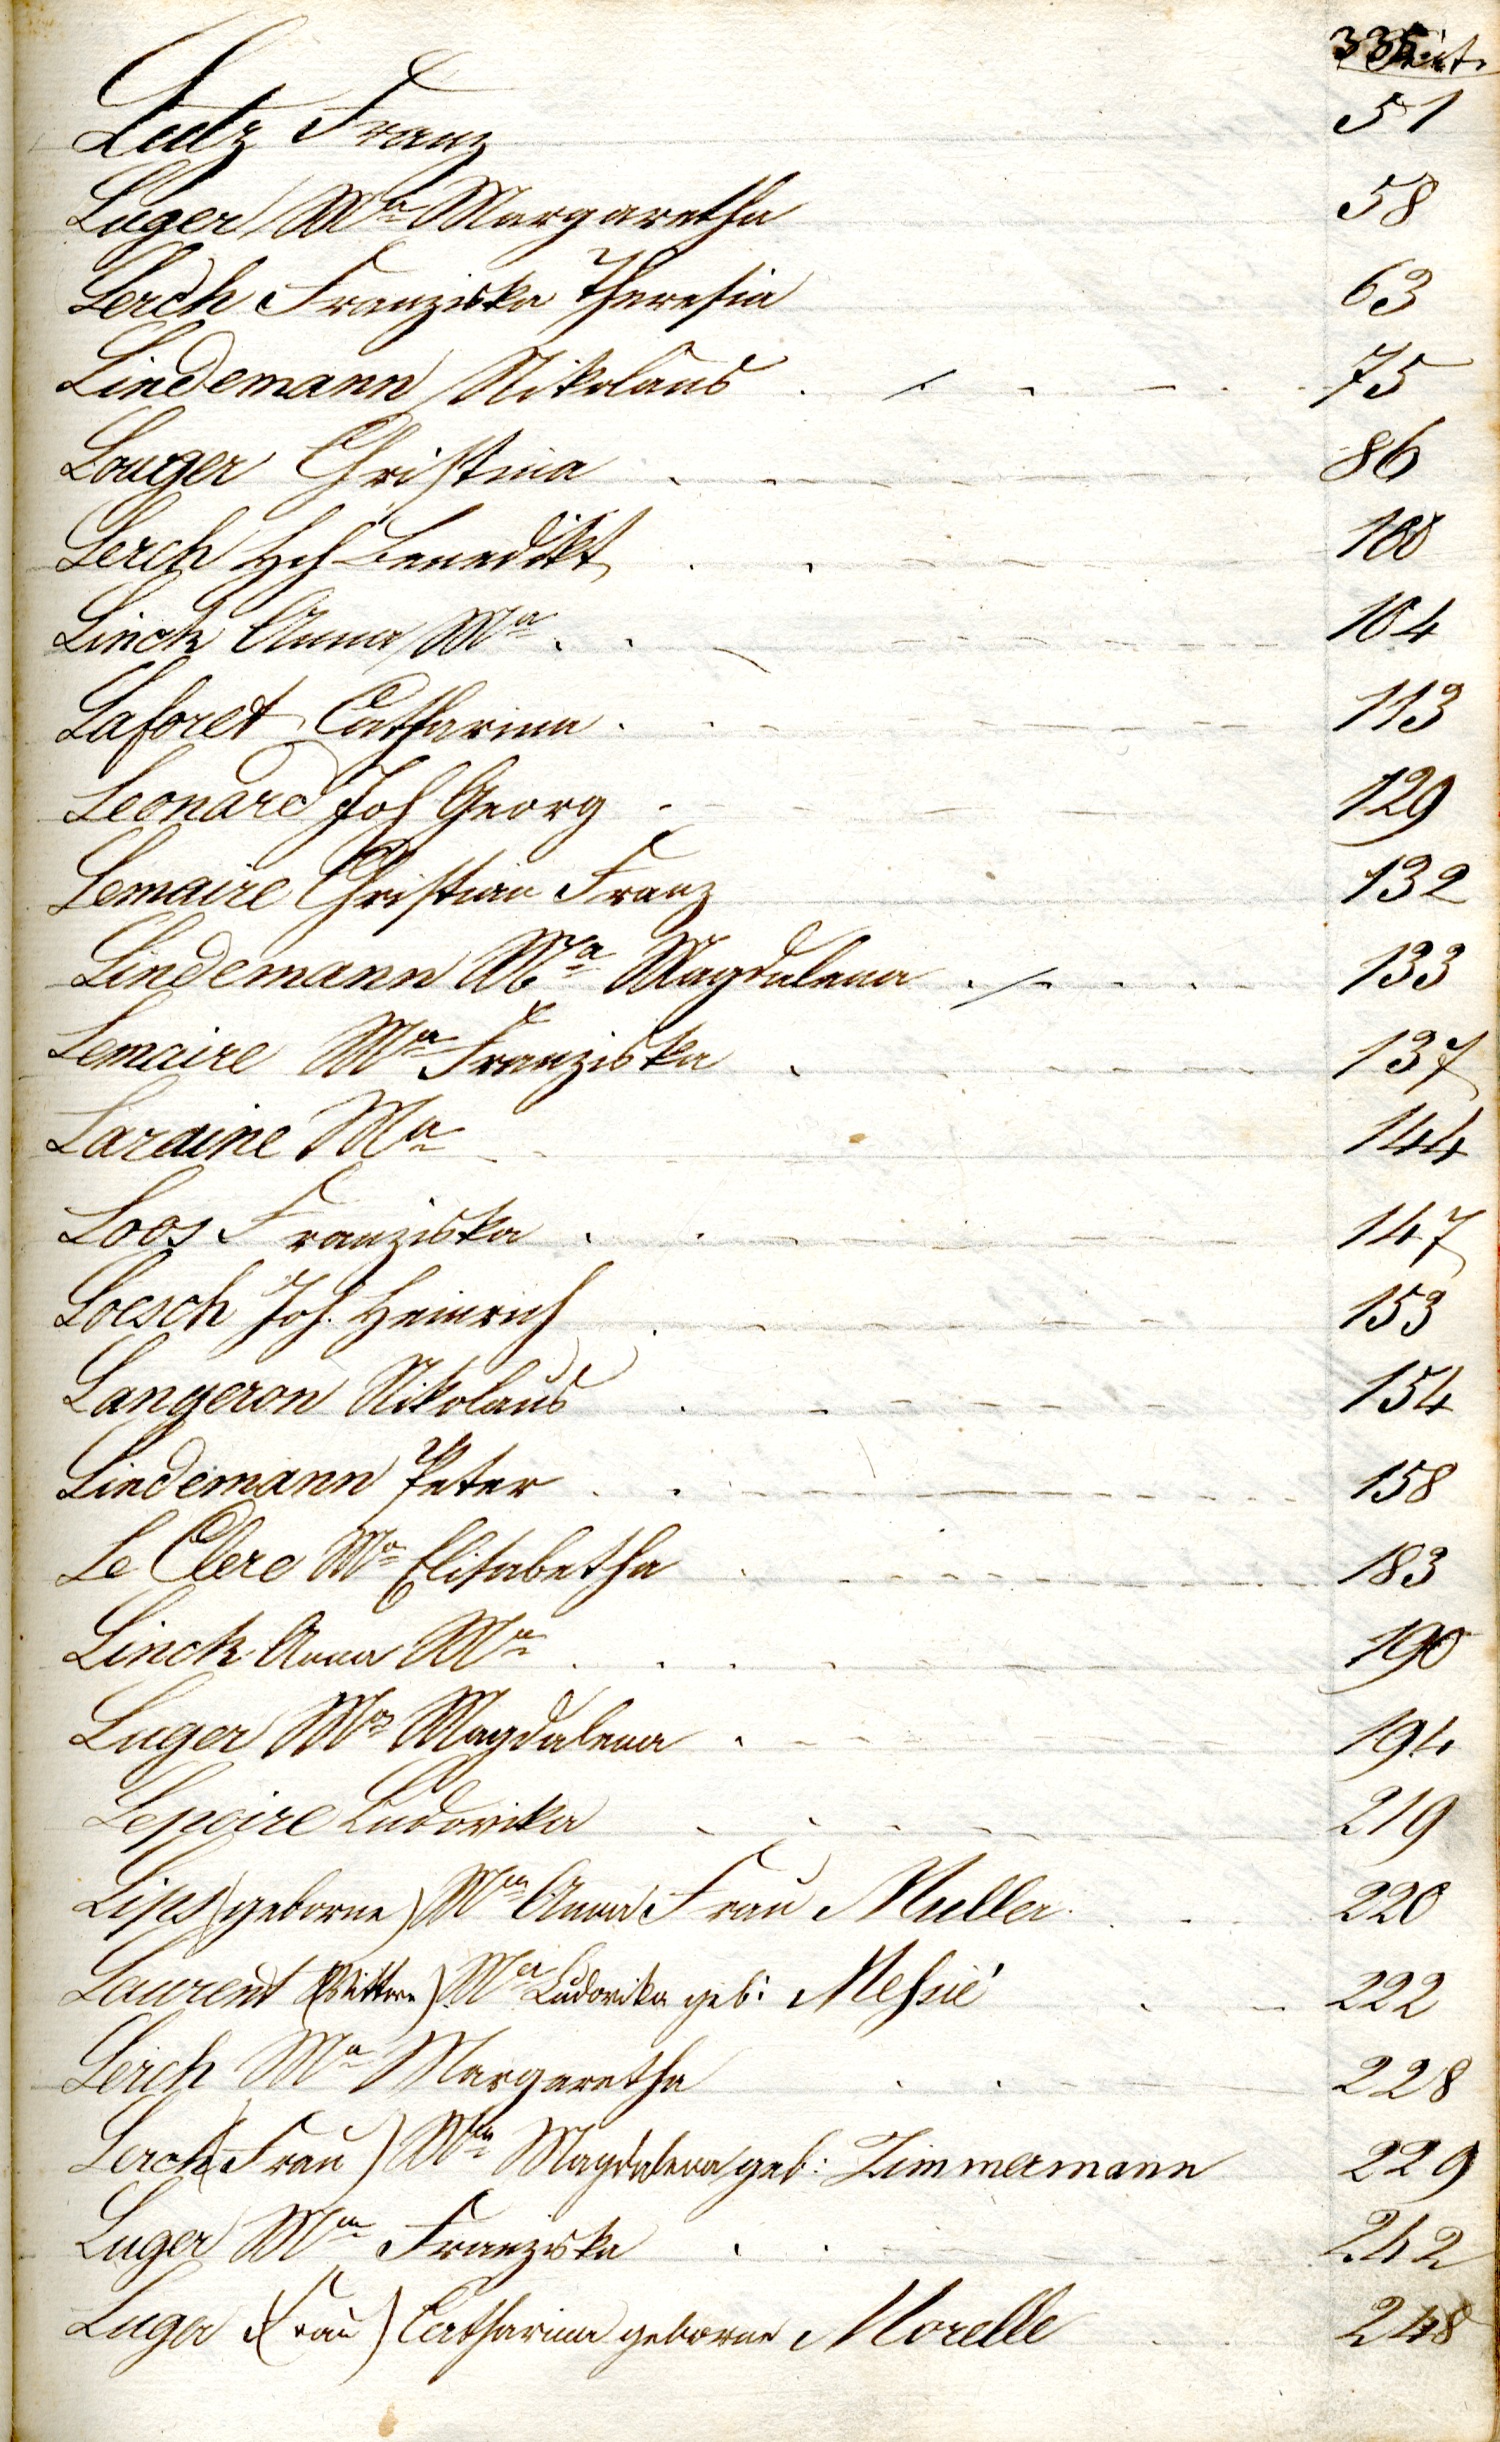 335.
Seite
Lutz Franz 51
Luger Mª Margaretha 58
Lerch Franziska Theresia 63
Lindemann Nikolaus 75
Louger Christina 86
Lerch Hch Benedikt 100
Linck Anna Mª 104
Laforet Catharina 113
Leonard Joh Georg 129
Lemaire Christian Franz 132
Lindemann Mª Magdalena 133
Lemaire Mª Franziska 137
Laraine Mª 144
Loos Franziska 147
Loesch Joh. Heinrich 153
Langeron Nikolaus 154
Lindemann Peter 158
Le Clere Mª Elisabetha 183
Linck Anna Mª 190
Luger Mª Magdalena 194
Lepoire Ludovika 219
Lips (geborne) Mª Anna Frau Muller 220
Laurent (Wittwe) Mª Ludovika geb: Meßié 222
Lerch Mª Margaretha 228
Lerch (Frau) Mª Magdalena geb: Zimmermann 229
Luger Mª Franziska 242
Luger (Frau) Catharina geborne Morelle 248